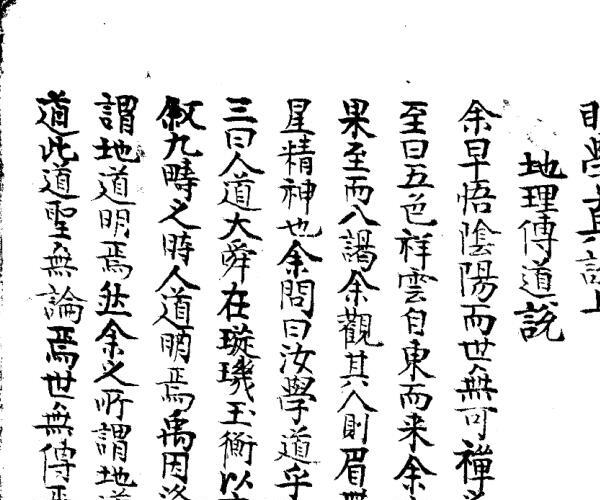 地理傳道說
余早悟陰陽而世無可禪
至曰五色祥雲自東而来余
果至而入謁余觀其人則眉
星精神也余問曰汝學道乎
三曰人道大舜在璇璣玉衡以
叙九疇之時人道明焉禹因洛
謂地道明焉然余之所謂地道
道此道聖無論焉世無傳焉